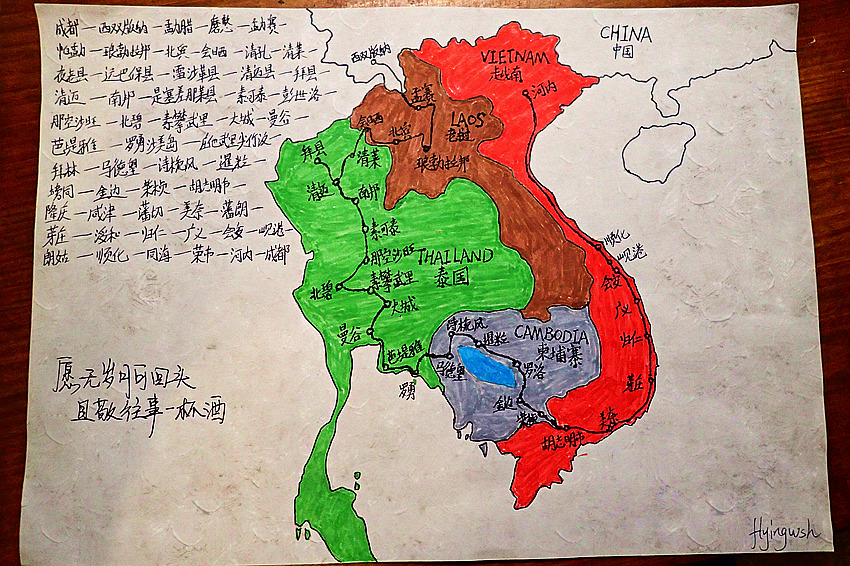 成都—西双版纳—勐腊—磨憨—勐赛—
帕勐—琅勃拉邦—北宾—会晒—清孔—清莱—
夜丰县—运巴保县—湄沙革县—清迈县—拜县—
清迈—南邦—是塞差那莱县—素可泰—彭世洛—
那空沙旺—北碧—素攀武里—大城—曼谷—
芭堤雅—罗勇沙美岛—
拜林—马德望—诗梳风—暹粒—
磅同—金边—柴桢—胡志明市—
隆庆—咸津—藩切—美奈—藩朗—
芽庄—绥和—归仁—广义—会安—岘港—
朗姑—顺化—同海—荣市—河内—成都
愿无岁月可回头
且敬往事一杯酒
CHINA
中国
西双版纳
VIETNAM
越南
河内
孟赛
LAOS
老挝
会晒
北宾
琅勃拉邦
拜县
清莱
清迈
南邦
素可泰
那空沙旺
THAILAND
泰国
素攀武里
北碧
大城
曼谷
芭堤雅
罗勇
诗梳风
暹粒
CAMBODIA
柬埔寨
马德望
罗洛
金边
柴桢
胡志明市
美奈
芽庄
归仁
广义
会安
岘港
顺化
Hyingwsh